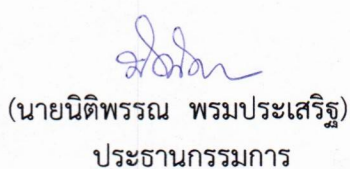 (นายนิติพรรณ พรมประเสริฐ)
ประธานกรรมการ